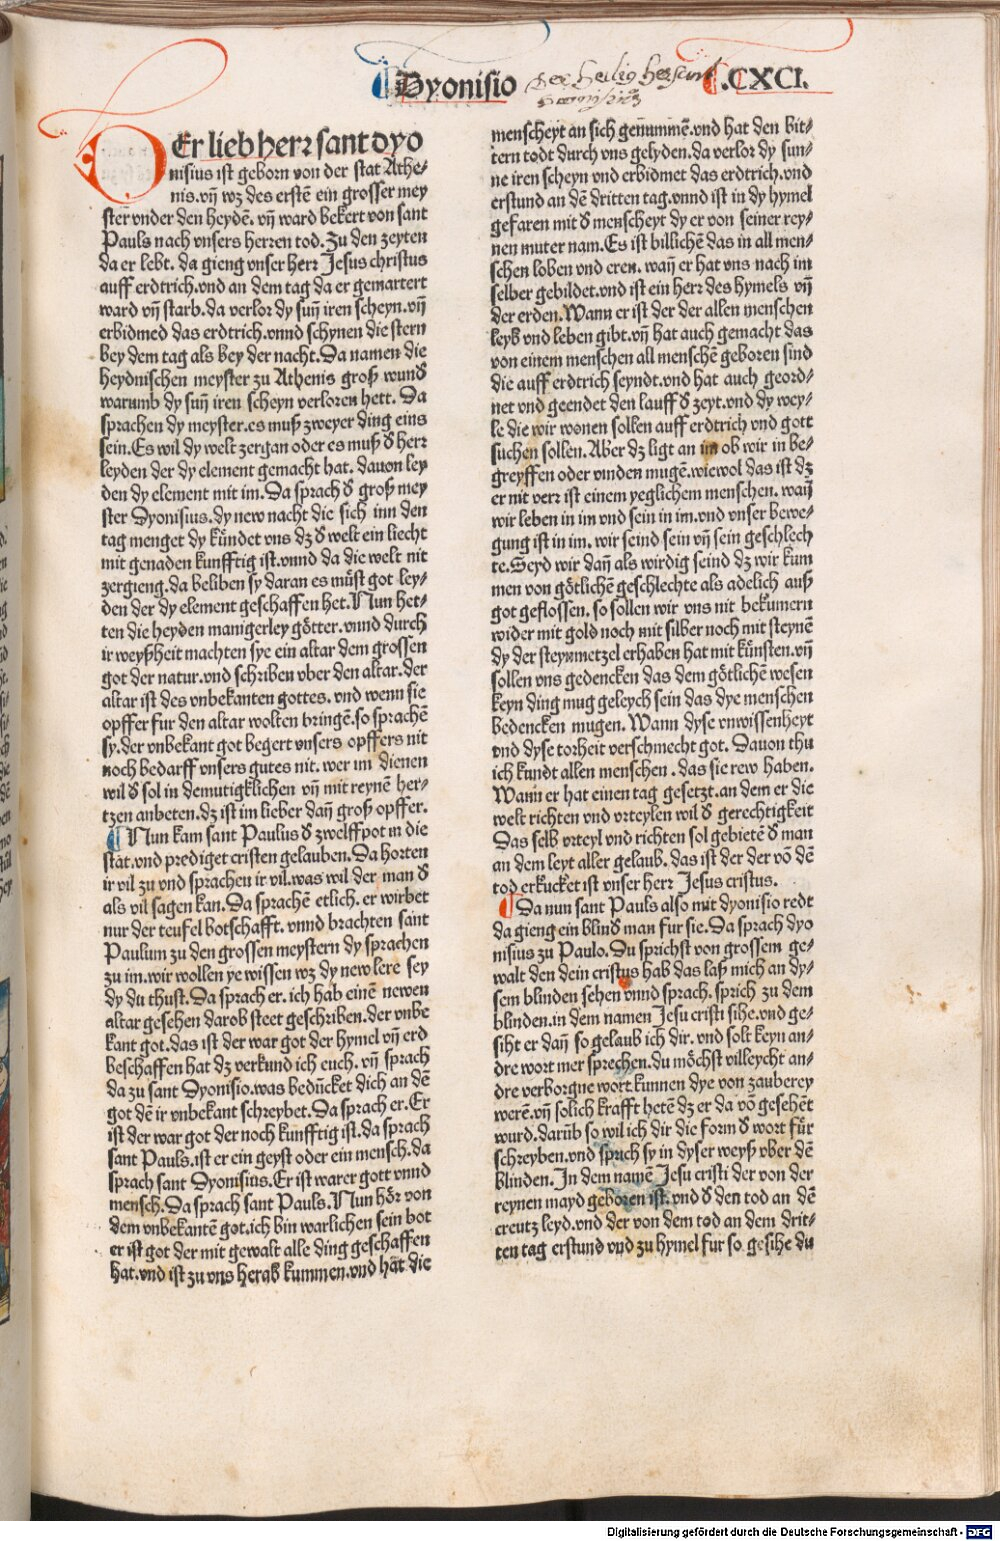 Dyonisio der heilig her sant
.CXCI.
DEr lieb herr sant dyo
nisius ist geborn von der stat Athe⸗
nis.vñ wz des erstē ein grosser mey
ster vnder den heydē. vñ ward bekert von sant
Pauls nach vnsers herren tod. Zu den zeyten
da er lebt. da gieng vnser herr Jesus christus
auff erdtrich.vnd an dem tag da er gemartert
ward vñ starb.da verlor dy suñ iren scheyn.vñ
erbidmed das erdtrich.vnnd schynen die stern
bey dem tag als bey der nacht. Da namen die
heydnischen meyster zu Athenis groß wund̄
warumb dy suñ iren scheyn verloren hett. Da
sprachen dy meyster.es muß zweyer ding eins
sein. Es wil dy welt zergan oder es muß d̄ herr
leyden der dy element gemacht hat. dauon ley
den dy element mit im. Da sprach d̄ groß mey
ster Dyonisius.dy new nacht die sich inn den
tag menget dy kündet vns dz d̄ welt ein liecht
mit genaden kunfftig ist.vnnd da die welt nit
zergieng.da beliben sy daran es můst got ley⸗
den der dy element geschaffen het. Nun het⸗
ten die heyden manigerley götter.vnnd durch
ir weyßheit machten sye ein altar dem grossen
got der natur.vnd schriben vber den altar.der
altar ist des vnbekanten gottes. vnd wenn sie
opffer fur den altar wolten bringē.so sprachē
sy.der vnbekant got begert vnsers opffers nit
noch bedarff vnsers gutes nit. wer im dienen
wil d̄ sol in demutigklichen vñ mit reynē her⸗
tzen anbeten.dz ist im lieber dañ groß opffer.
Nun kam sant Paulus d̄ zwelffpot in die
stat.vnd prediget cristen gelauben. Da horten
ir vil zu vnd sprachen ir vil.was wil der man d̄
als vil sagen kan. Da sprachē etlich. er wirbet
nur der teufel botschafft. vnnd brachten sant
Paulum zu den grossen meystern dy sprachen
zu im.wir wollen ye wissen wz dy new lere sey
dy du thust. Da sprach er. ich hab einē newen
altar gesehen darob steet geschriben.der vnbe
kant got.das ist der war got der hymel vñ erd
beschaffen hat dz verkund ich euch. vñ sprach
da zu sant Dyonisio.was bedücket dich an dē
got dē ir vnbekant schreybet. Da sprach er. Er
ist der war got der noch kunfftig ist.da sprach
sant Pauls.ist er ein geyst oder ein mensch.da
sprach sant Dyonisius. Er ist warer got vnnd
mensch. Da sprach sant Pauls. Nun hör von
dem vnbekantē got.ich bin warlichen sein bot
er ist got der mit gewalt alle ding geschaffen
hat.vnd ist zu vns herab kummen.vnd hat die
menscheyt an sich genummē.vnd hat den bit⸗
tern todt durch vns gelyden.da verlor dy sun⸗
ne iren scheyn vnd erbidmet das erdtrich.vnd
erstund an dē dritten tag.vnnd ist in dy hymel
gefaren mit d̄ menscheyt dy er von seiner rey⸗
nen muter nam. Es ist billichē das in all men⸗
schen loben vnd eren. wañ er hat vns nach im
selber gebildet.vnd ist ein herr des hymels vñ
der erden. Wann er ist der der allen menschen
leyb vnd leben gibt.vñ hat auch gemacht das
von einem menschen all menschē geboren sind
die auff erdtrich seyndt.vnd hat auch geord⸗
net vnd geendet den lauff d̄ zeyt.vnd dy wey⸗
le die wir wonen sollen auff erdtrich vnd gott
suchen sollen. Aber dz ligt an im ob wir in be⸗
greyffen oder vinden mugē.wiewol das ist dz
er nit verr ist einem yeglichem menschen. wañ
wir leben in im vnd sein in im.vnd vnser bewe⸗
gung ist in im. wir seind sein vñ sein geschlech
te. Seyd wir dañ als wirdig seind dz wir kum
men von götlichē geschlechte als adelich auß
got geflossen. so sollen wir vns nit bekumern
wider mit gold noch mit silber noch mit steynē
dy der steynmetzel erhaben hat mit künsten.vñ
sollen vns gedencken das dem götlichē wesen
keyn ding mug geleych sein das dye menschen
bedencken mugen. Wann dyse vnwissenheyt
vnd dyse torheit verschmecht got. Dauon thu
ich kundt allen menschen . das sie rew haben.
Wann er hat einen tag gesetzt.an dem er die
welt richten vnd vrteylen wil d̄ gerechtigkeit
Das selb vrteyl vnd richten sol gebietē d̄ man
an dem leyt aller gelaub. das ist der der vō dē
tod erkucket ist vnser herr Jesus cristus.
Da nun sant Pauls also mit dyonisio redt
da gieng ein blind̄ man fur sie. Da sprach dyo
nisius zu Paulo. Du sprichst von grossem ge⸗
walt den dein cristus hab das laß mich an dy⸗
sem blinden sehen vnnd sprach. sprich zu dem
blinden.in dem namen Jesu cristi sihe.vnd ge⸗
siht er dañ so gelaub ich dir. vnd solt keyn an⸗
dre wort mer sprechen.du möchst villeycht an⸗
dre verborgne wort kunnen dye von zauberey
werē.vñ solich krafft hetē dz er da vō gesehēt
wurd.darūb so wil ich dir die form d̄ wort für
schreyben.vnd sprich sy in dyser weyß vber dē
blinden. In dem namē Jesu cristi der von der
reynen mayd geboren ist.vnd d̄ den tod an dē
creutz leyd.vnd der von dem tod an dem drit⸗
ten tag erstund vnd zu hymel fur so gesihe du
Digitalisierung gefördert durch die Deutsche Forschungsgemeinschaft - DFG